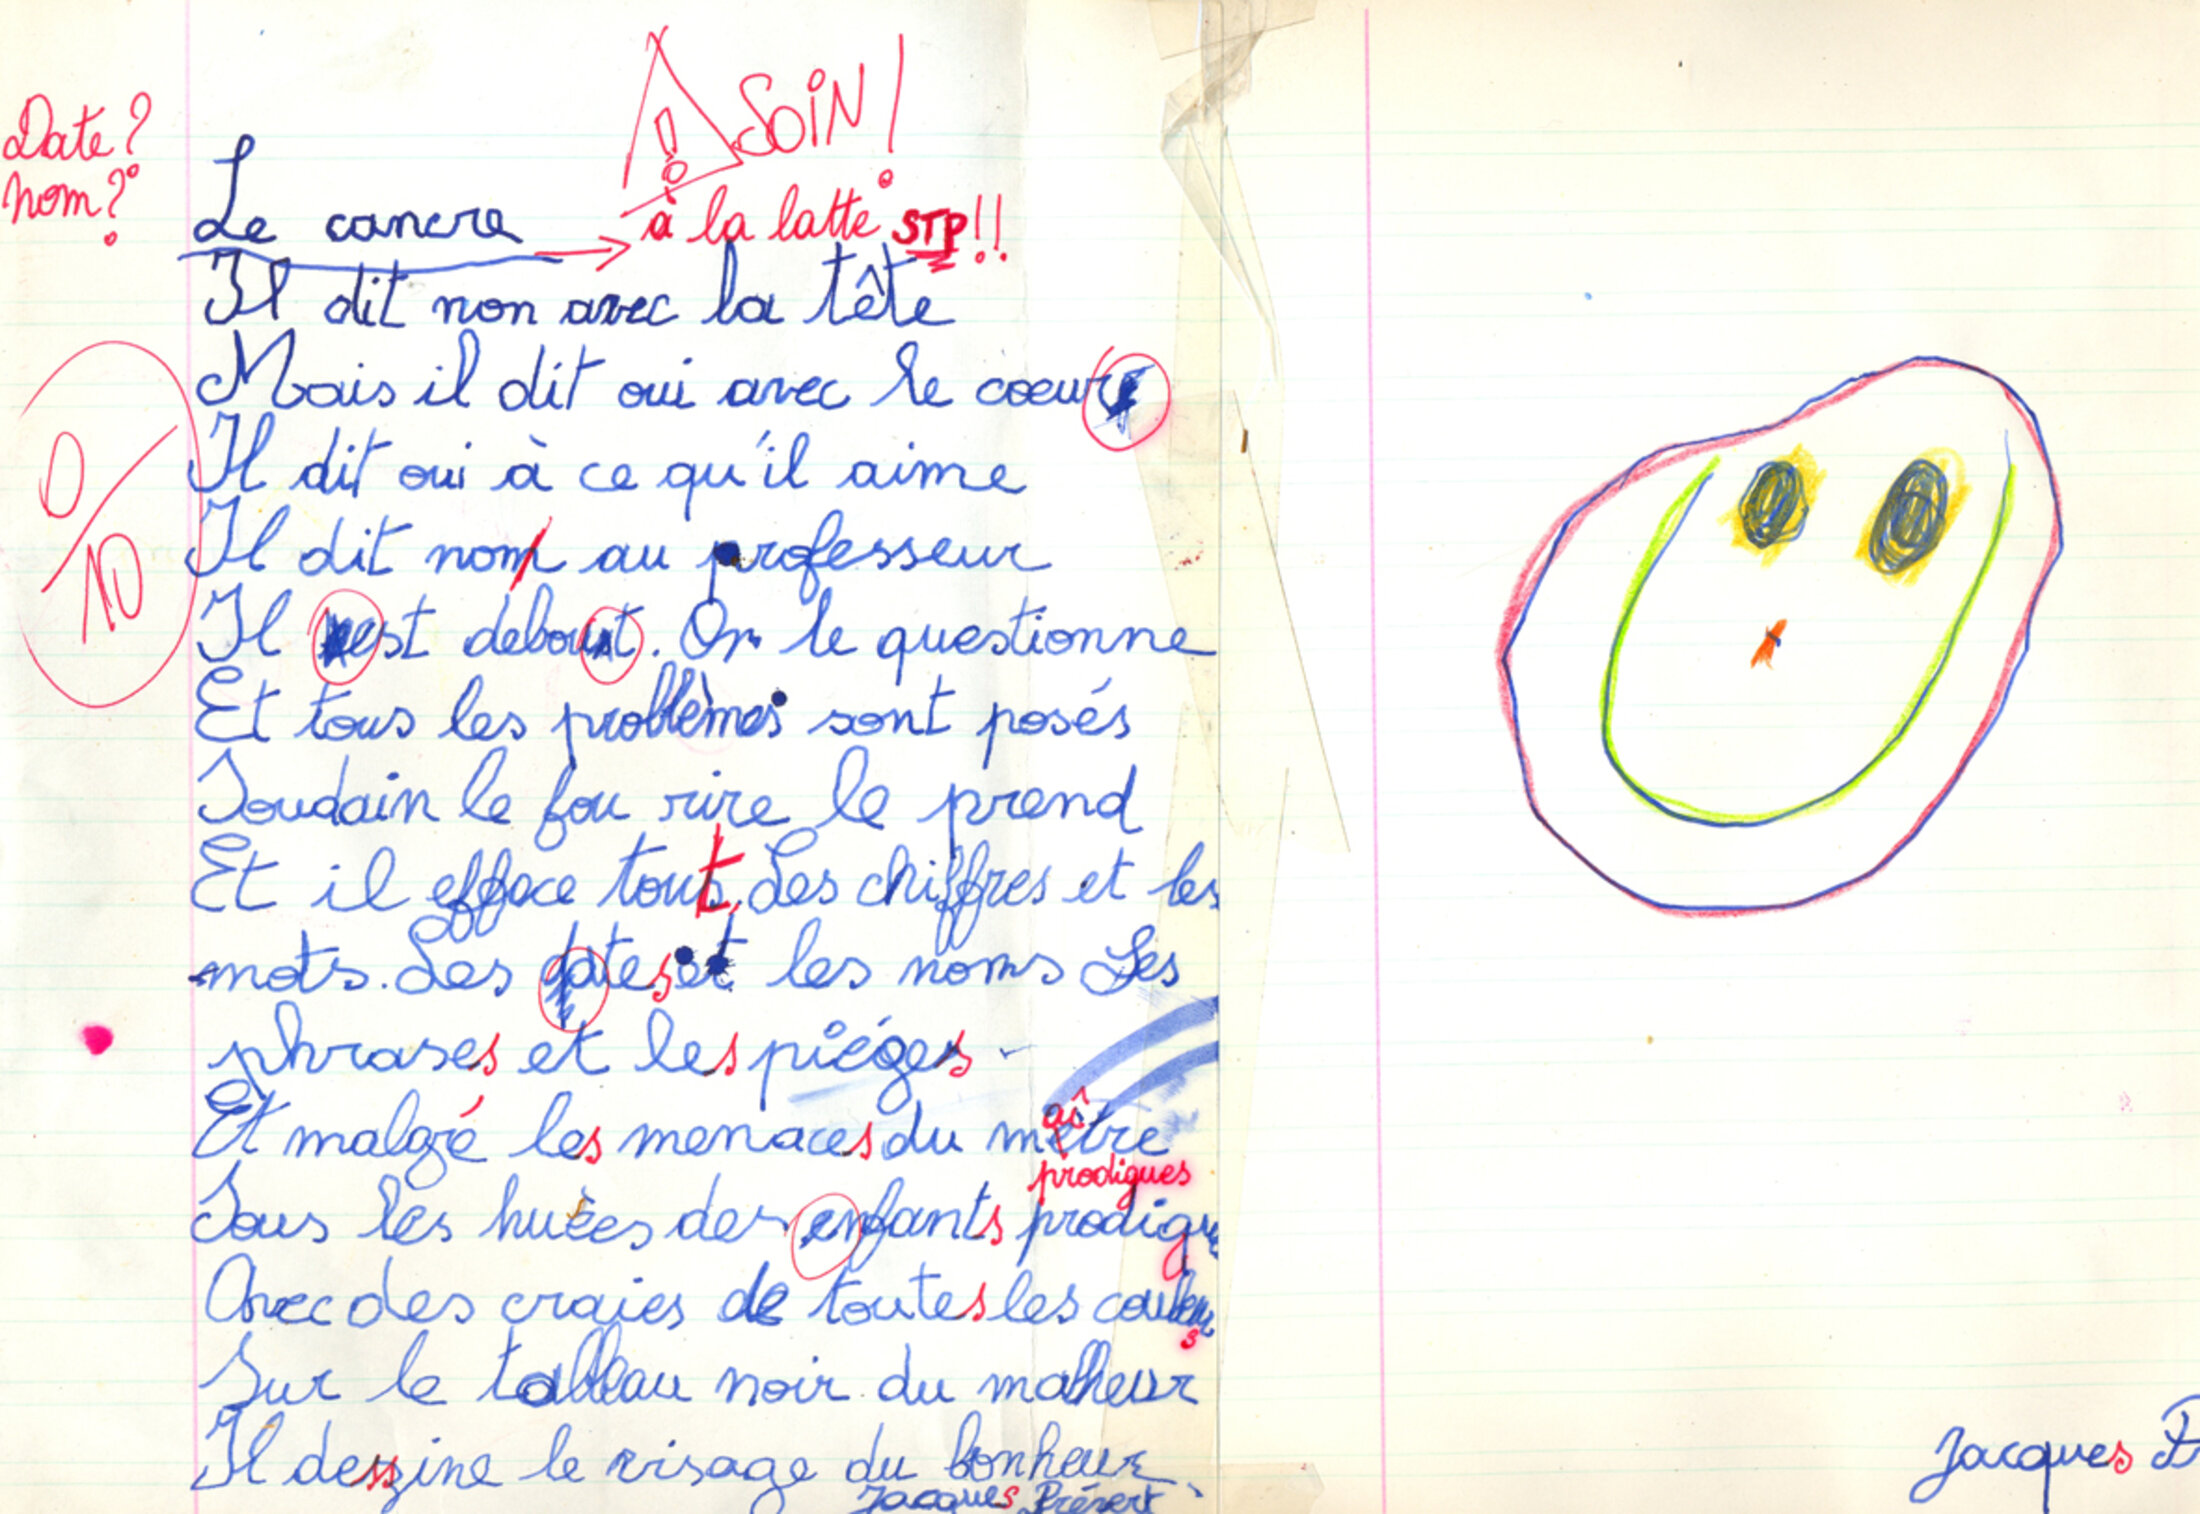 Date?
nom?
SOIN!
Le cancre
à la latte STP!!
Il dit non avec la tête
Mais il dit oui avec le coeur
Il dit oui à ce qu'il aime
0/10
Il dit non au professeur
Il est debout. On le questionne
Et tous les problèmes sont posés
Soudain le fou rire le prend
Et il efface tout, Les chiffres et les
mots. Les dates et les noms Les
phrases et les piéges
Et malgré les menaces du maître
prodigues
Sous les huées des enfants prodigu
Avec des craies de toutes les couleurs
Sur le tableau noir du malheur
Il dessine le visage du bonheur
Jacques Prévert
Jacques P